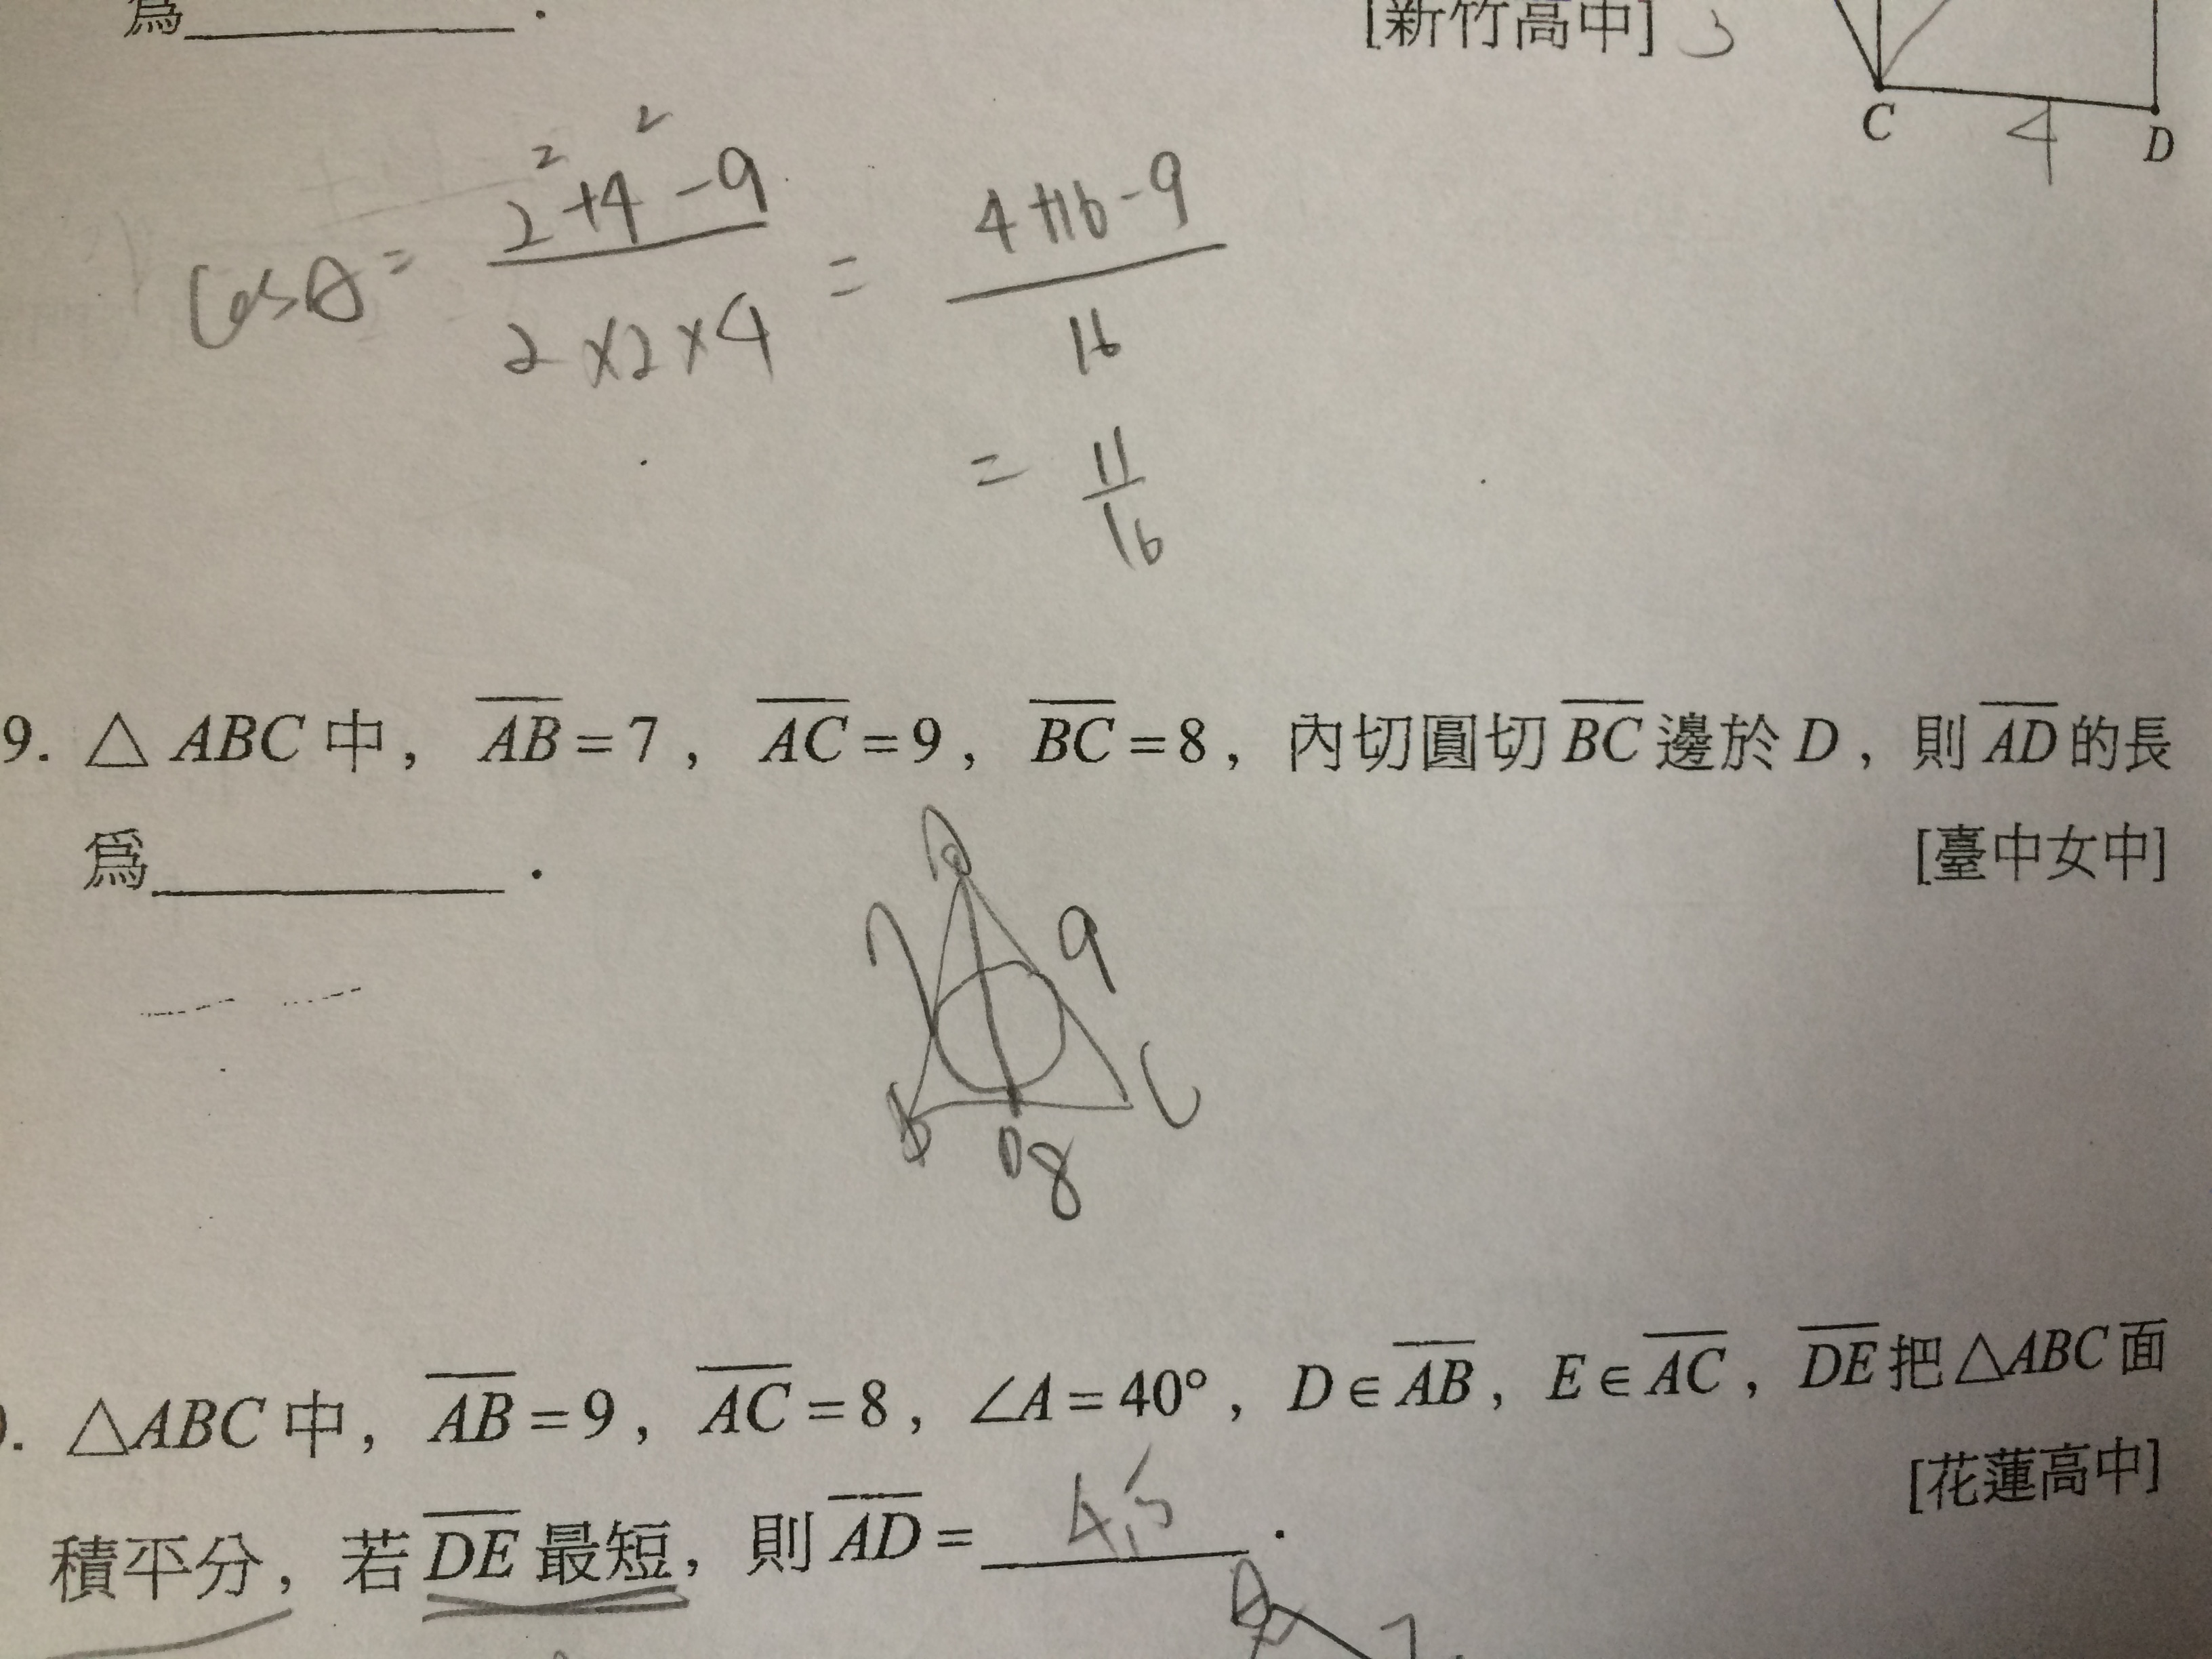 為 .
[新竹高中] 3
C 4 D
cosθ = (2²+4²-9)/(2×2×4) = (4+16-9)/16
= 11/16
9. △ABC中, AB=7, AC=9, BC=8, 內切圓切BC邊於D, 則AD的長
為 . [臺中女中]
A
7 9
B D 8 C
. △ABC中, AB=9, AC=8, ∠A=40°, D∈AB, E∈AC, DE把△ABC面
[花蓮高中]
積平分, 若DE最短, 則AD= 4.5 .
A